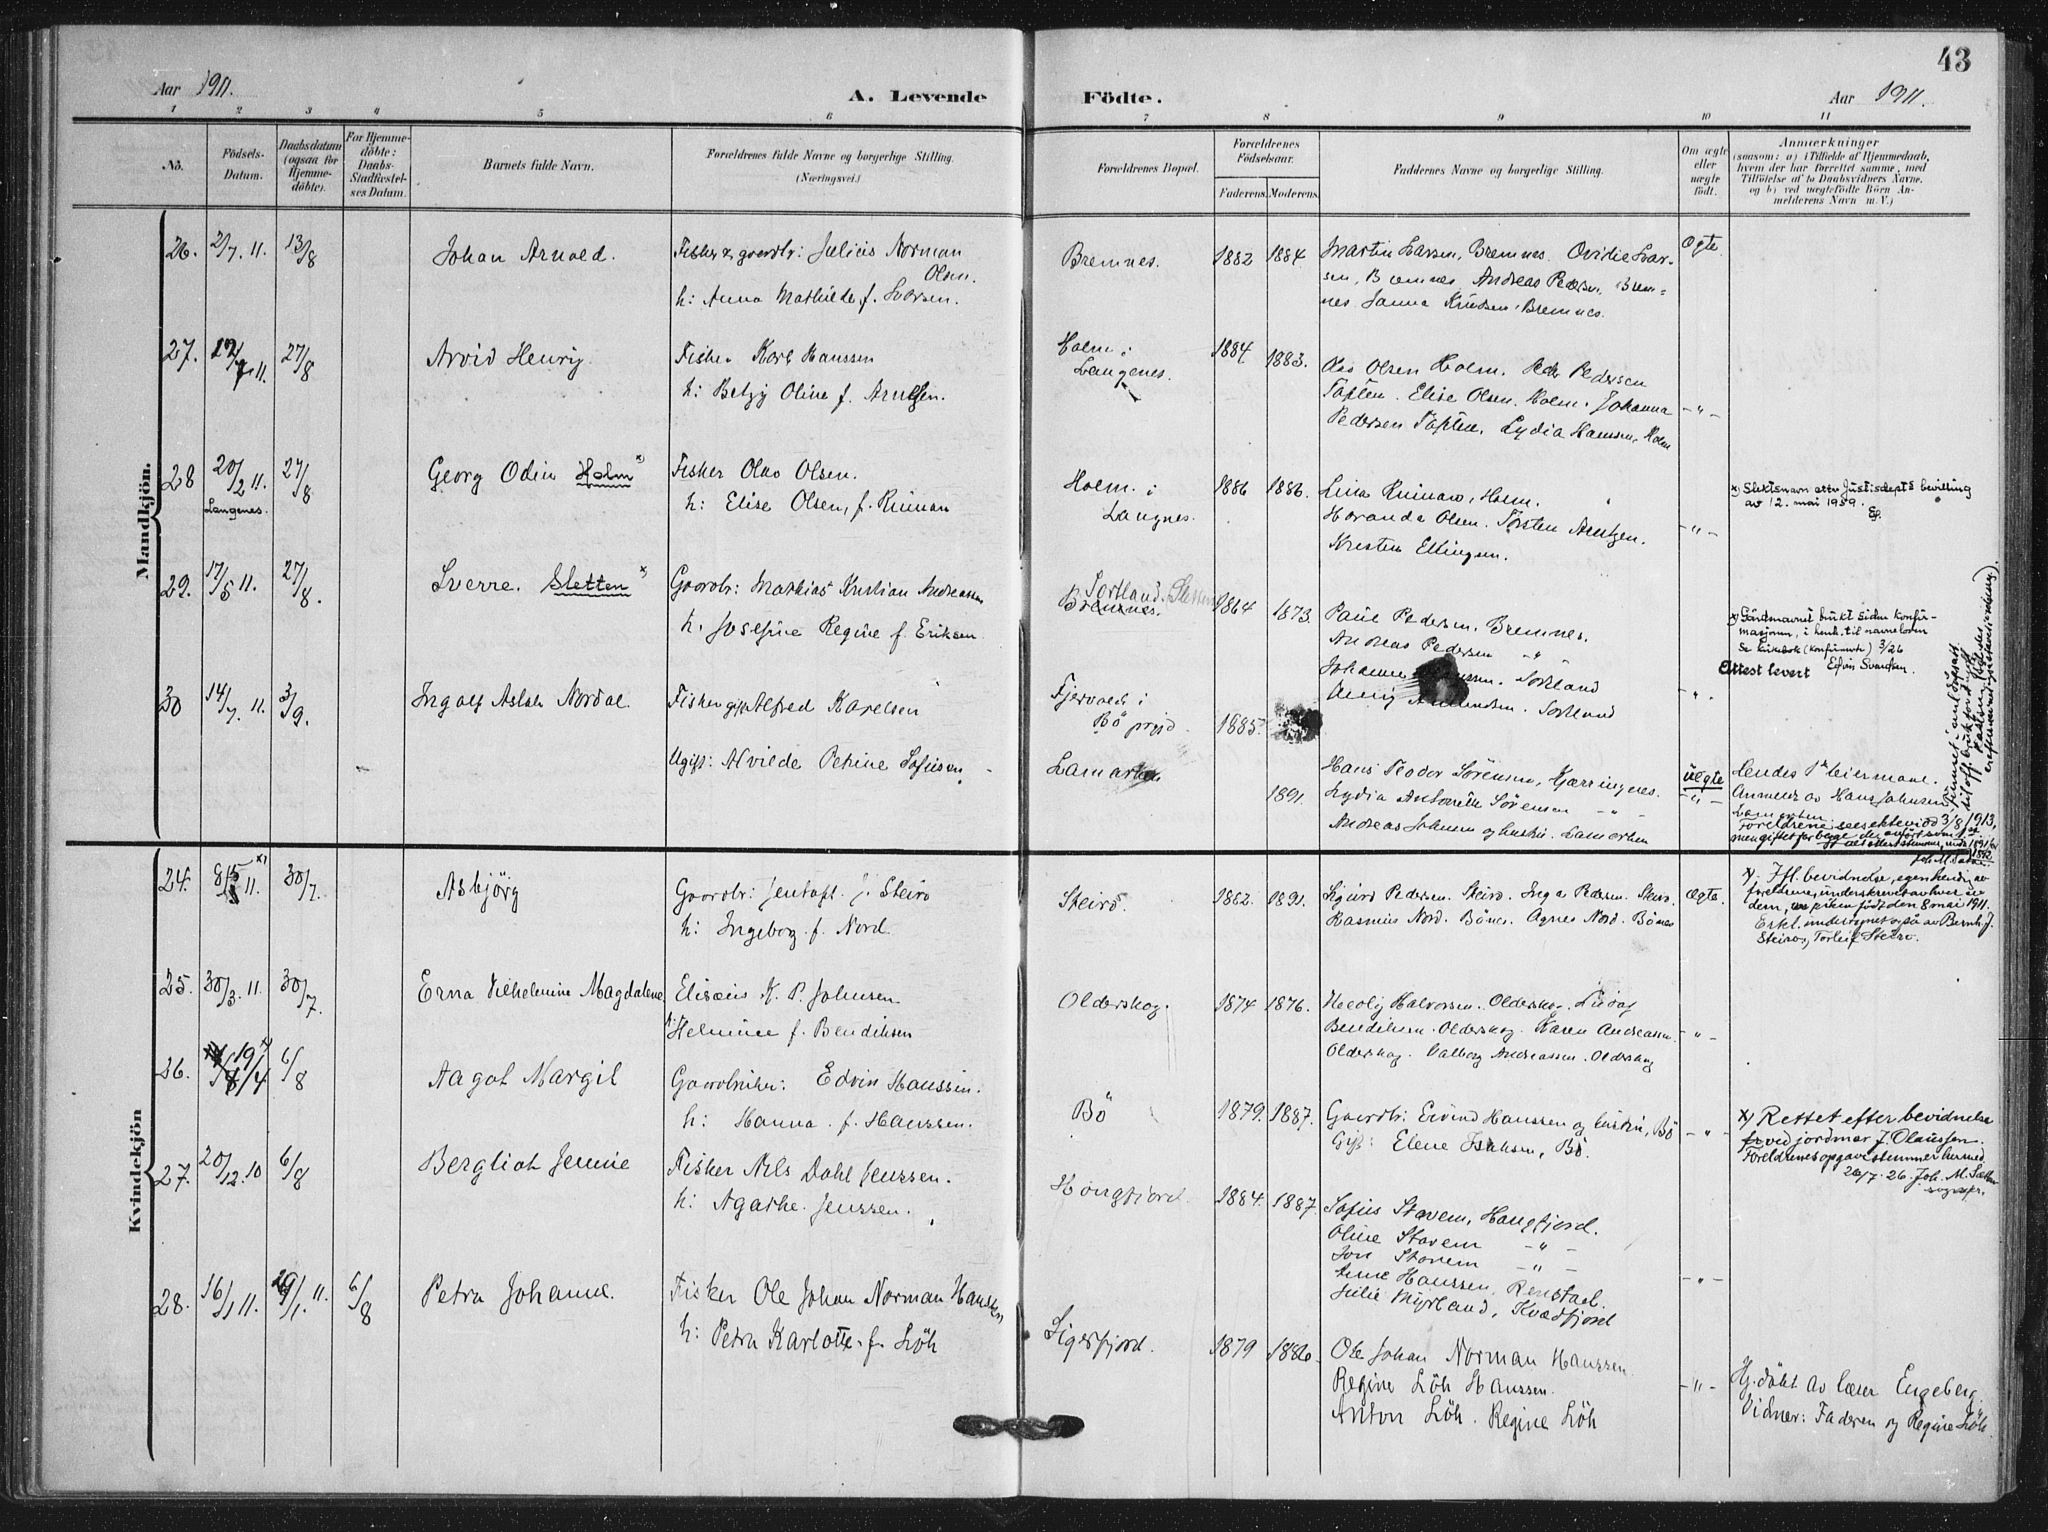 43
Aar 1911.
A. Levende Födte.
Aar 1911.
1 2 3 4 5 6 7 8 9 10 11
No.
Födsels-Datum.
Daabsdatum (ogsaa for Hjemme-döbte).
For Hjemme-döbte: Daabs-Stadfæstel-ses Datum.
Barnets fulde Navn.
Forældrenes fulde Navne og borgerlige Stilling.
(Næringsvei.)
Forældrenes Bopæl.
Forældrenes Födselsaar.
Faderens. Moderens.
Faddernes Navne og borgerlige Stilling.
Om ægte eller uægte födt.
Anmærkninger
(saasom: a) i Tilfælde af Hjemmedaab,
hvem der har forrettet samme, med
Tilföielse af to Daabsvidners Navne,
og b) ved uægtefödte Börn An-
melderens Navn m. V.)
Mandkjön.
26. 2/7 11. 13/8 Johan Arnold.
Fisker & gaardbr: Julius Norman
Olsen.
h: Anna Mathilde f. Larsen.
Bremnes. 1882 1884
Martin Larsen, Bremnes. Ovidie Lar-
sen, Bremnes. Andreas Pedersen, Brem-
nes. Janna Knudsen, Bremnes.
Ægte
27. 12/7 11. 27/8 Arvid Henrig
Fisker Karl Hanssen
h: Betzy Oline f. Arntsen.
Holm i
Langenes.
1884 1883.
Olav Olsen Holm. Peder Pedersen
Toften. Elise Olsen. Holm. Johanna
Pedersen Toften. Lydia Hansen, Holm
-"-
28 20/2 11. 27/8 Georg Odin Holm x)
Langenes.
Fisker Olav Olsen.
h: Elise Olsen, f. Ruinan
Holm i
Langnes.
1886 1886.
Lina Ruinan, Holm.
Haranda Olsen. Torsten Arntzen.
Kristen Ellingsen.
-"-
x) Slektsnavn etter Justisdepts bevilling
av 12. mai 1959.
29. 17/5 11. 27/8. Sverre. Sletten x)
Gaardbr: Mathias Kristian Andreassen
h. Josefine Regine f. Eriksen
Sortland. Sletten
Bremnes.
1864 1873.
Paul Pedersen. Bremnes.
Andreas Pedersen -"-
Sortland
Sortland
-"-
x) Gårdsnavnet brukt siden konfir-
masjonen, i henh. til navneloven
Se kirkebok (Konfirmerte) 3/26
Attest levert
30 14/7 11. 3/9. Ingolf Aslak Nordal.
Fisker gift Alfred Karelsen
Ugift: Alvilde Petrine Sofusen
Fjærvold i
Bö prgjd
1885.
1891.
Hans Teodor Sörensen, Kjerringnes.
Lydia Antonette Sörensen -"-
Andreas Johnsen og hustru. Lamarken
Uægte
-"-
Hendes 1ste leiermaal.
Anmeldt av Hans Johnsen
Foreldrene ble ektevidd 3/8 1913,
Kvindekjön
24. 8/5 11 x) 30/7. Asbjörg
Gaardbr: Jentoft J. Steirö
h: Ingeborg f. Nord.
Steirö. 1862. 1891.
Sigurd Pedersen. Steirö. Inga Pedersen. Steirö.
Rasmus Nord. Bönes. Agnes Nord. Bönes
Ægte.
x) Ifl. bevidnelse, egenhendig av
foreldrene, underskrevet av hver av
dem, er piken född den 8 mai 1911.
Erkl. undertegnet også av Bernh. J.
Steiro, Torleif Steiro.
25. 30/3. 11. 30/7. Erna Vilhelmine Magdalene
Elisæus K. P. Johnsen.
h: Helmine f. Bendiksen
Olderskog. 1874 1876.
Hedvig Halvorsen. Olderskog. Ludvig
Bendiksen. Olderskog. Karen Andreassen
Olderskog. Valborg Andreassen. Olderskog
-"-
26. 19/4 x) 6/8 Aagot Margit
Gaardbruker: Edvin Hanssen.
h: Hanna. f. Hanssen.
Bö 1879. 1887.
Gaardbr: Eivind Hanssen og hustru, Bö
Gift: Elene Isaksen, Bö.
-"-
x) Rettet efter bevidnelse
ved jordmor J. Olaussen.
Foreldrenes opgave stemmer hermed
26/7. 26. Joh. M. Sæther
sogepr.
27. 20/12. 10 6/8 Bergliot Jennie
Fisker Nils Dahl Jenssen.
h: Agathe. Jenssen.
Hongfjord. 1884. 1887.
Sofus Stavem, Hongfjord.
Oline Stavem -"-
Jon Stavem -"-
Anne Hanssen, Renstad.
Julie Myrland, Kvædfjord
-"-
28. 16/1 11. 29/1. 11. 6/8 Petra Johanne.
Fisker Ole Johan Norman Hanssen
h: Petra Karlotte f. Löh
Sigerfjord. 1879 1886.
Ole Johan Norman Hanssen
Regine Löh Hanssen.
Anton Löh. Regine Löh
-"-
Hj. döbt av lærer Engeberg.
Vidner: Faderen og Regine Löh.